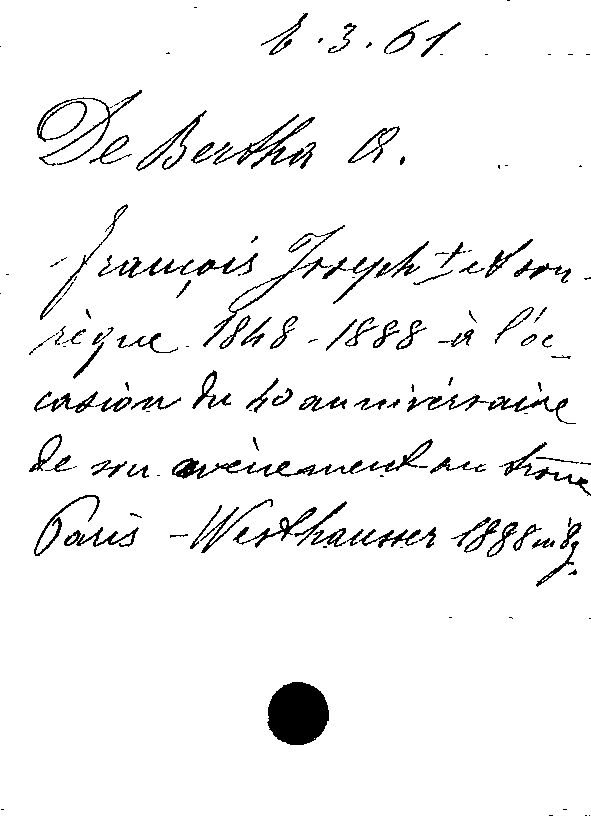 E.3.61
De Bertha A.
François Joseph I et son
règne 1848-1888 à l'oc-
casion du 40 anniversaire
de son avènement au trône
Paris - Westhausser 1888 in 8